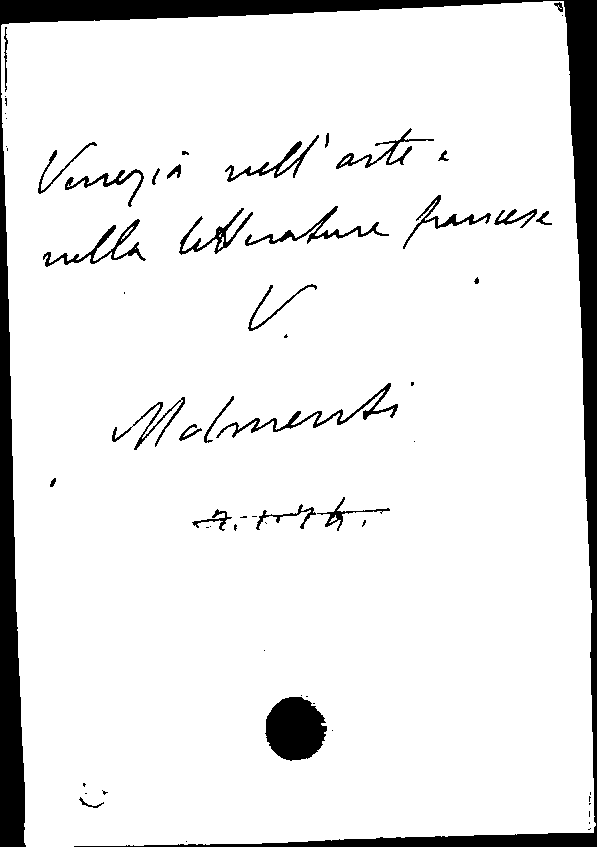 Venezia nell'arte e
nella letteratura francese
V.
Molmenti